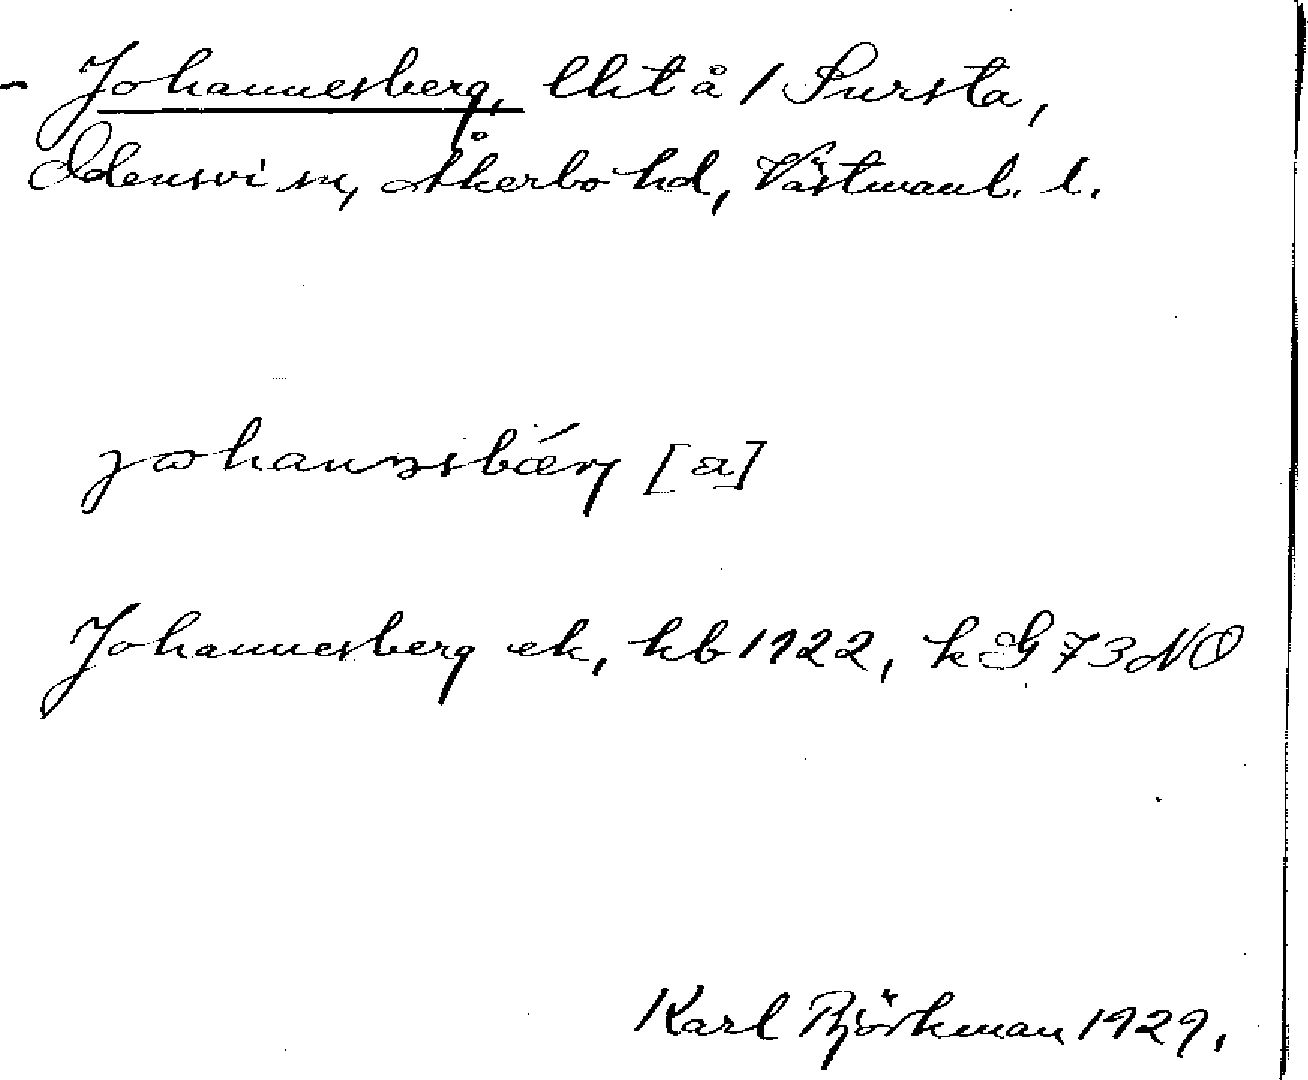 - Johannesberg, lht å 1 Sursta,
Odensvi sn, Åkerbo hd, Västmanl. l.
[a]
Johannesberg ek, kb 1922, k G 73 NO
Karl Björkman 1929.